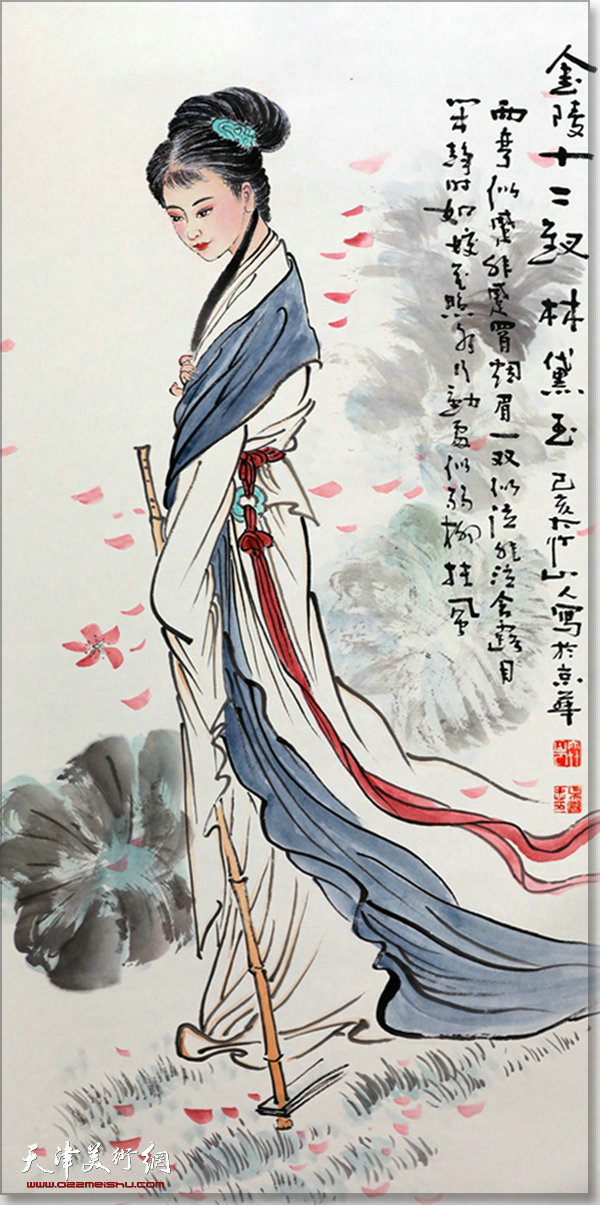 金陵十二釵 林黛玉 己亥 竹山人寫於京華
两弯似蹙非蹙罥烟眉一双似泣非泣含露目
闲静时如姣花照水行動處似弱柳扶风
天津美術網
www.022meishu.com